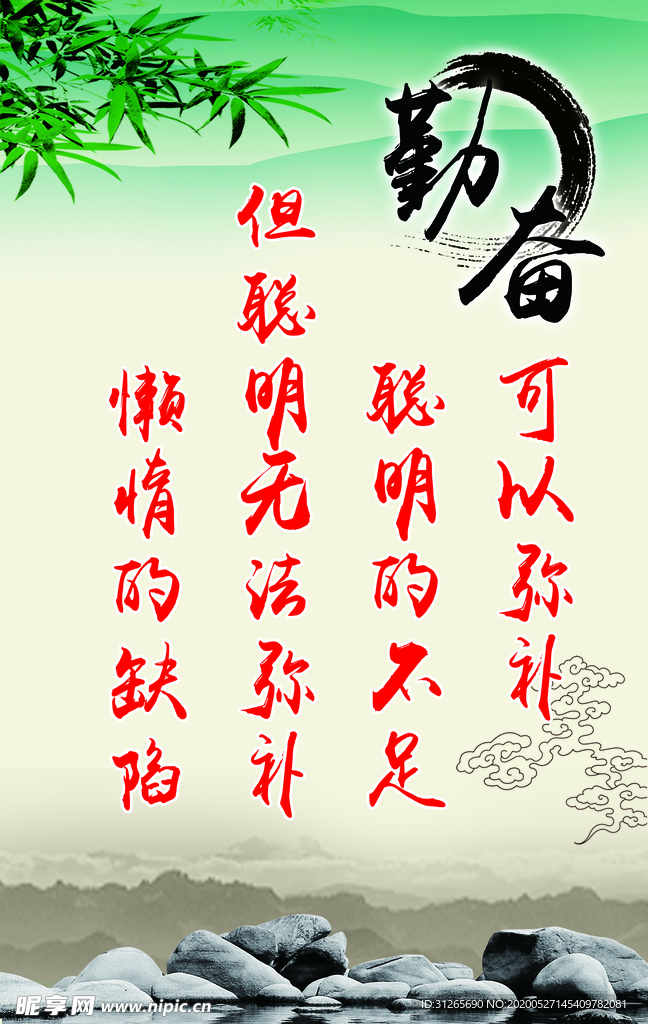 勤奋
可以弥补
聪明的不足
但聪明无法弥补
懒惰的缺陷
昵享网 www.nipic.cn
ID:31265690 NO:20200527145409782081